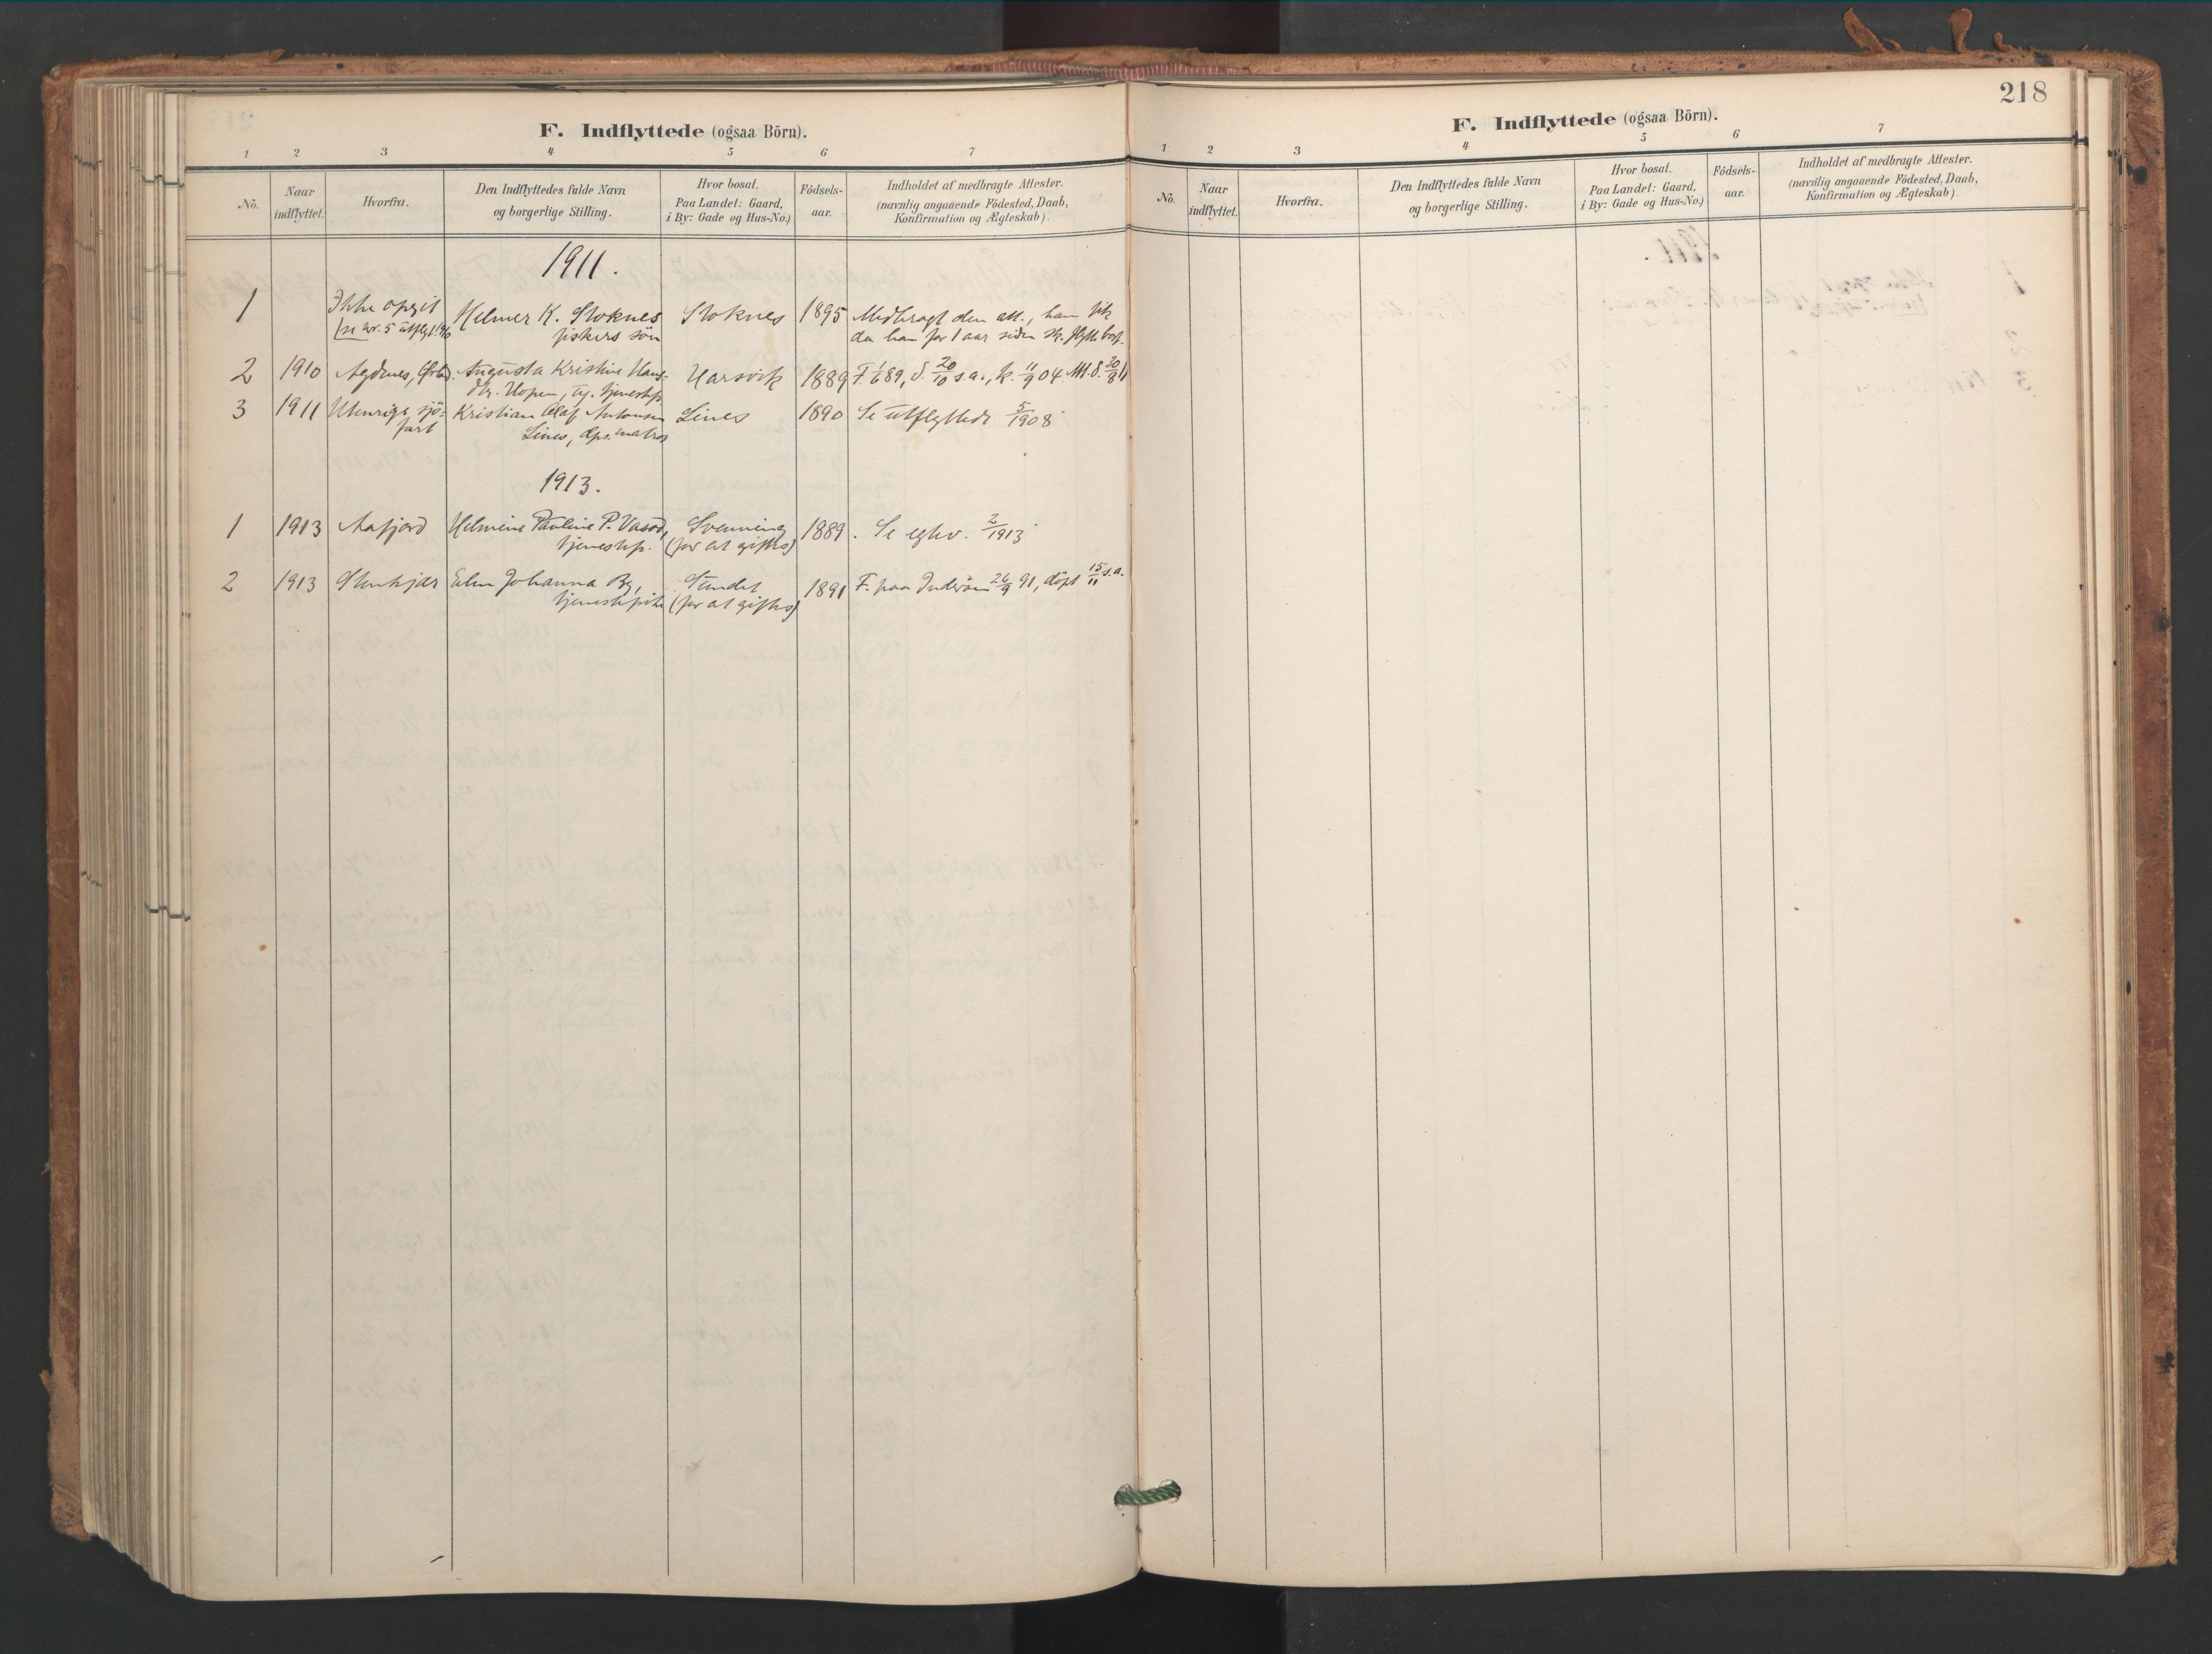 218
F. Indflyttede (ogsaa Börn).
1 2 3 4 5 6 7
No.
Naar indflyttet.
Hvorfra.
Den Indflyttedes fulde Navn og borgerlige Stilling.
Hvor bosat. Paa Landet: Gaard, i By: Gade og Hus-No.)
Födsels-aar.
Indholdet af medbragte Attester. (navnlig angaaende Födested, Daab, Konfirmation og Ægteskab).
1911.
1 Ikke opgit Helmer K. Stoknes Stoknes 1895 Medbragt den att., han fik
(se nr. 5 utflyt. fiskers sön da han for 1 aar siden sk. flytte bort.
2 1910 Agdenes, Augusta Kristine Hans- Harsvik 1889 F. 1/6 89, d. 20/10 s.a., k. 11/9 04. Att. d. 30/8 11
dtr. Hopen, ug. tjenestp.
3 1911 Utenrigs sjö- Kristian Olaf Antonsen Lines 1890 Se utflyttede 5/1908
fart Lines, matros
1913.
1 1913 Aafjord Helmine Pauline P. Vasöd, Svenning 1889. Se egtev. 2/1913
tjenestep. (for at giftes)
2 1913 Stenkjær Elen Johanna By, Sundet 1891 F. paa Inderöen 26/9 91, döpt 15/11 s.a.
tjenestepike (for at giftes)
F. Indflyttede (ogsaa Börn).
1 2 3 4 5 6 7
No.
Naar indflyttet.
Hvorfra.
Den Indflyttedes fulde Navn og borgerlige Stilling.
Hvor bosat. Paa Landet: Gaard, i By: Gade og Hus-No.)
Födsels-aar.
Indholdet af medbragte Attester. (navnlig angaaende Födested, Daab, Konfirmation og Ægteskab).